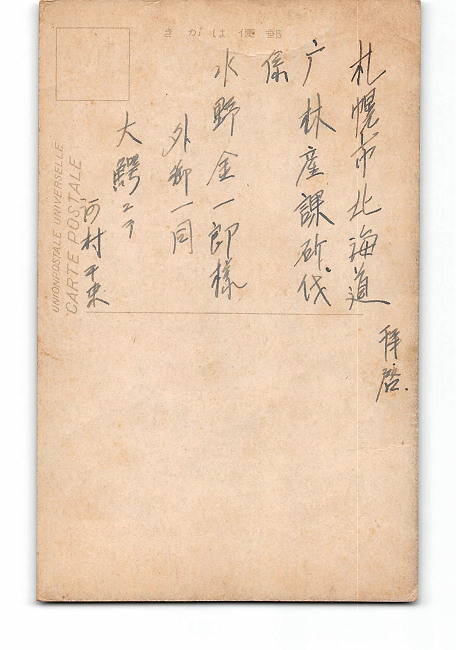 きがは便郵
札幌市北海道
庁林産課斫伐
係
水野金一郎様
外御一同
大鰐ニテ
河村
拝啓.
UNION POSTALE UNIVERSELLE
CARTE POSTALE